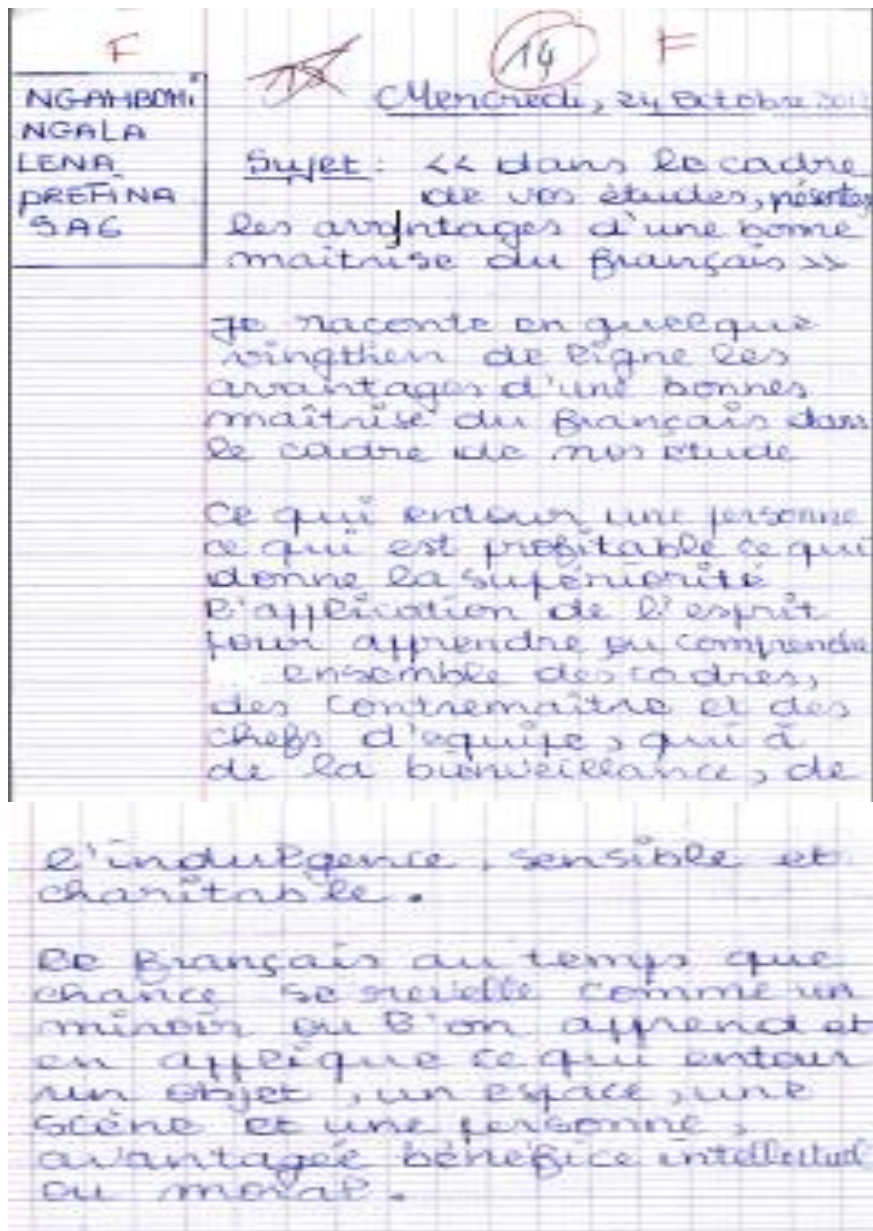 F
14
F
NGAMBOMI
NGALA
LENA
PREFINA
SA6
Mercredi, 24 Octobre
Sujet : << dans le cadre
de vos études, présentez
les avantages d'une bonne
maîtrise du français >>
Je raconte en quelque
vingthen de ligne les
avantages d'une bonnes
maîtrise du français dans
le cadre de nos étude
Ce qui entour une personne
ce qui est profitable ce qui
donne la supériorité
l'application de l'esprit
pour apprendre ou comprendre
ensemble des cadres,
des contremaître et des
chefs d'equipe, qui à
de la bienveillance, de
l'indulgence, sensible et
charitable.
le français au temps que
chance se revelle comme un
miroir ou l'on apprend et
en applique ce qui entour
un objet, un espace, une
scène et une personne,
avantagée bénéfice intellectuel
ou moral.